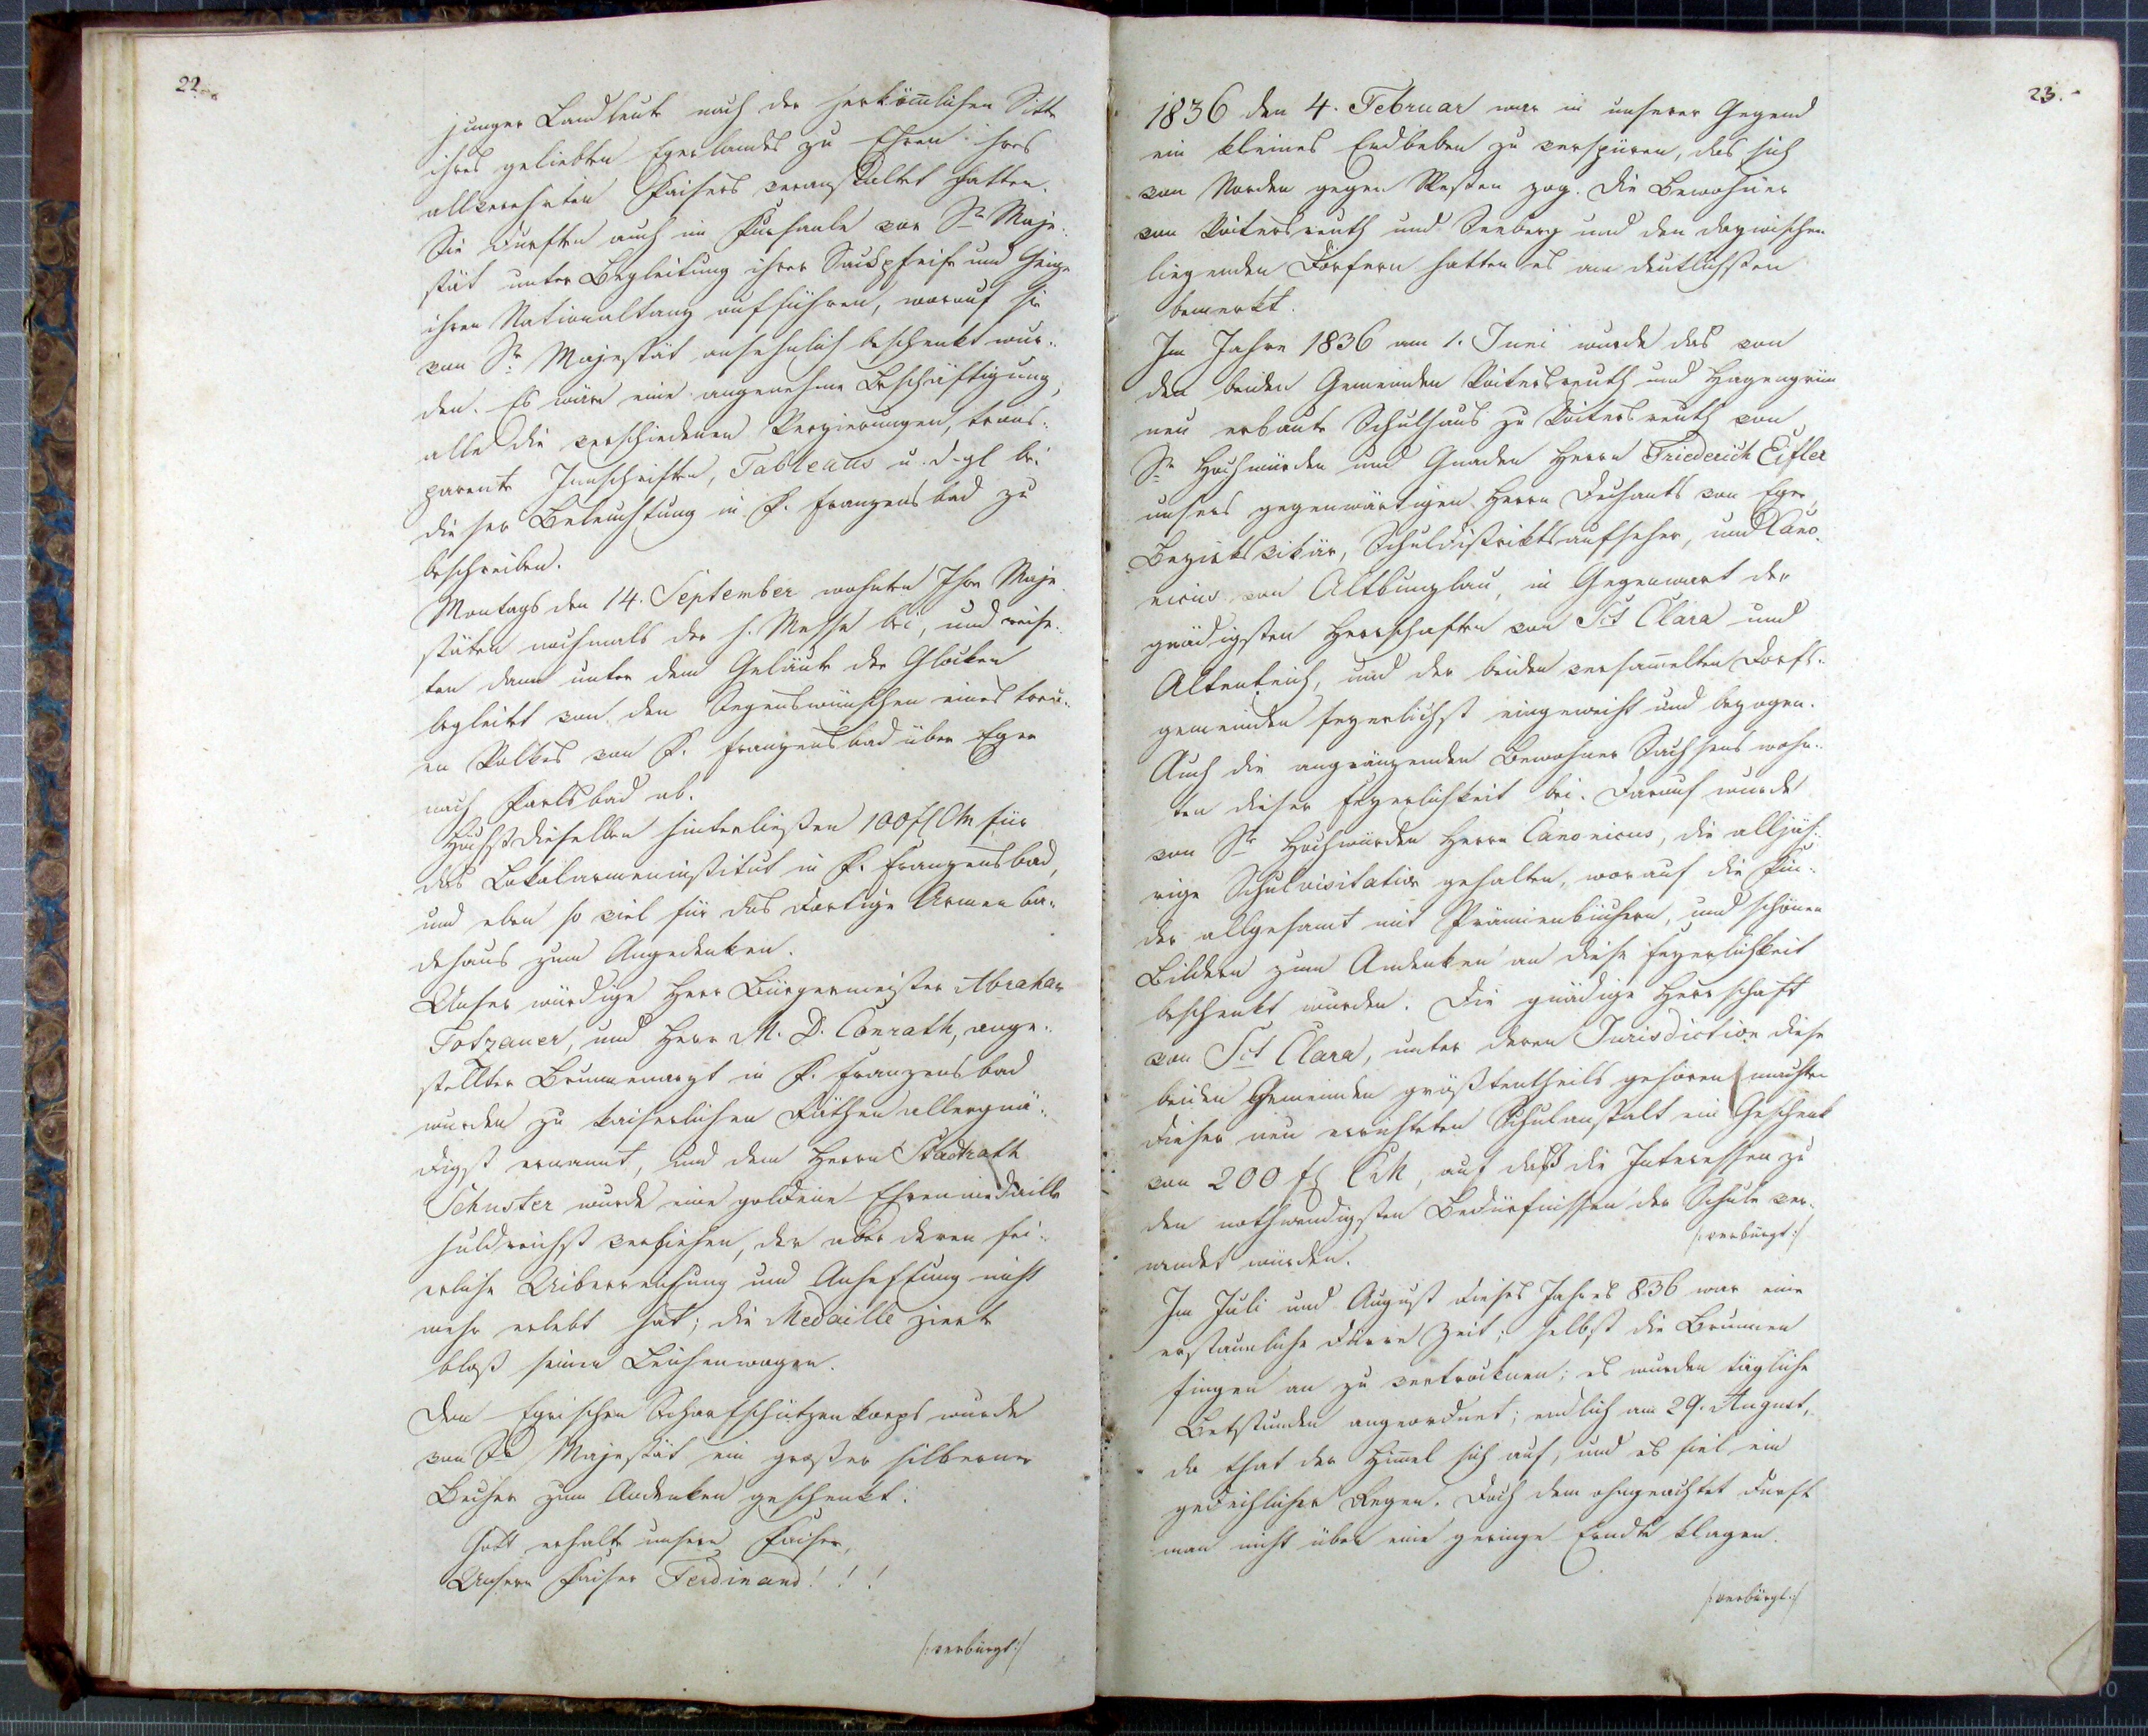 22.
junger Landleute nach der herkömlichen Sitte
ihres geliebten Egerlandes zu Ehren ihres
allverehrten Kaisers veranstaltet hatten.
Sie durften auch im Kursaale vor Sr Maje-
stät unter Begleitung ihrer Sackpfeife und Geige
ihren Nationaltanz aufführen, worauf sie
von Sr Majestät ansehnlich beschenkt wur-
den. Es wäre eine angenehme Beschäftigung,
alle die verschiedenen Verzierungen, trans-
parente Innschriften, Tableaus u. d. gl bei
dieser Beleuchtung in K. Franzensbad zu
beschreiben.
Montags den 14. September wohnten Ihre Maje-
stäten nochmals der h. Messe bei, und reise-
ten dann unter dem Geläute der Glocken
begleitet von den Segenswünschen eines treu-
en Volkes von K. Franzensbad über Eger
nach Karlsbad ab.
Höchstdieselben hinterließen 100 fl CM für
das Lokalarmeninstitut in K. Franzensbad,
und eben so viel für das dortige Armenba-
dehaus zum Angedenken.
Unser würdige Herr Bürgermeister Abraham
Totzauer, und Herr M. D. Conrath, ange-
stellter Brunnenarzt in K. Franzensbad
wurden zu kaiserlichen Räthen allergnä-
digst ernannt, und dem Herrn Stadtrath
Schuster wurde eine goldene Ehrenmedaille
huldreichst verliehen, der aber deren fei-
erliche Uiberreichung und Anheftung nicht
mehr erlebt hat; die Medaille zierte
bloß seinen Leichenwagen.
Dem Egrischen Scharfschützenkorps wurde
von Sr Majestät ein großer silberner
Becher zum Andenken geschenkt.
Gott erhalte unsern Kaiser,
Unsern Kaiser Ferdinand!!!
/:verbürgt:/
23.
1836 den 4. Februar war in unserer Gegend
ein kleines Erdbeben zu verspüren, das sich
von Norden gegen Westen zog. Die Bewohner
von Voitersreuth und Seeberg und den dazwischen
liegenden Dörfern hatten es am deutlichsten
bemerkt.
Im Jahre 1836 am 1. Juni wurde das von
den beiden Gemeinden Voitersreuth und Hagengrün
neu erbaute Schulhaus zu Voitersreuth von
Sr Hochwürden und Gnaden Herrn Friederich Eißler
unsers gegenwärtigen Herrn Dechants von Eger,
Bezirksvikär, Schuldistriktsaufseher, und Cano-
nicus von Altbunzlau, in Gegenwart der
gnädigsten Herrschaften von Sct Clara und
Altenteich, und der beiden versamelten Dorfs-
gemeinden feyerlichst eingeweiht und bezogen.
Auch die angränzenden Bewohner Sachsens wohn-
ten dieser Feyerlichkeit bei. Darauf wurde
von Sr Hochwürden Herrn Canonicus, die alljäh-
rige Schulvisitation gehalten, worauf die Kin-
der allgesamt mit Prämienbüchern, und schönen
Bildern zum Andenken an diese Feyerlichkeit
beschenkt wurden. Die gnädige Herrschaft
von Sct Clara, unter deren Jurisdiction diese
beiden Gemeinden größtentheils gehören machte
dieser neu errichteten Schulanstalt ein Geschenk
von 200 fl CM, auf daß die Interessen zu
den nothwendigsten Bedürfnissen der Schule ver-
wendet würden.
/:verbürgt:/
Im Juli und August dieses Jahres 836 war eine
erstaunliche dürre Zeit; selbst die Brunnen
fingen an zu vertrocknen; es wurden tägliche
Betstunden angeordnet; endlich am 29. August,
da that der Himel sich auf, und es fiel ein
gedeihlicher Regen. Doch dem ohngeachtet durft
man nicht über eine geringe Erndte klagen.
/:verbürgt:/